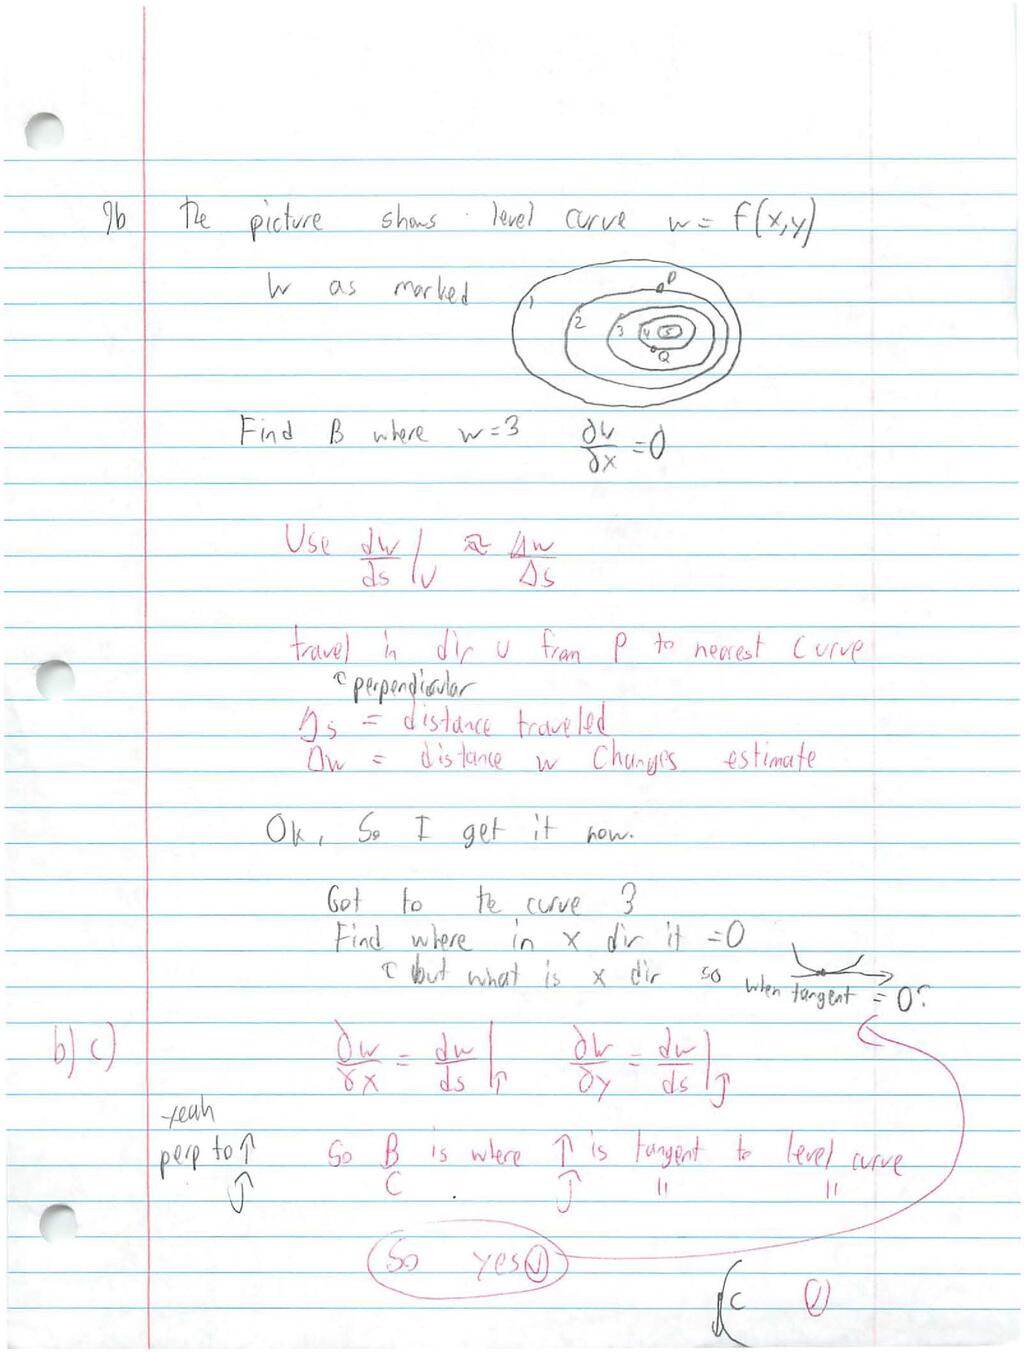 9b The picture shows level curve w = f(x,y)
w as marked
P
1 2 3 4 5
Q
Find B where w=3 ∂w/∂x = 0
Use dw/ds |u ≈ Δw/Δs
travel in dir u from P to nearest curve
↑ perpendicular
Δs = distance traveled
Δw = distance w changes estimate
Ok, So I get it now.
Got to the curve 3
Find where in x dir it = 0
↑ but what is x dir so when tangent = 0?
b) c) ∂w/∂x = dw/ds |î ∂w/∂y = dw/ds |ĵ
yeah
perp to î So B is where î is tangent to level curve
ĵ C ĵ " "
So yes ✓
C ✓